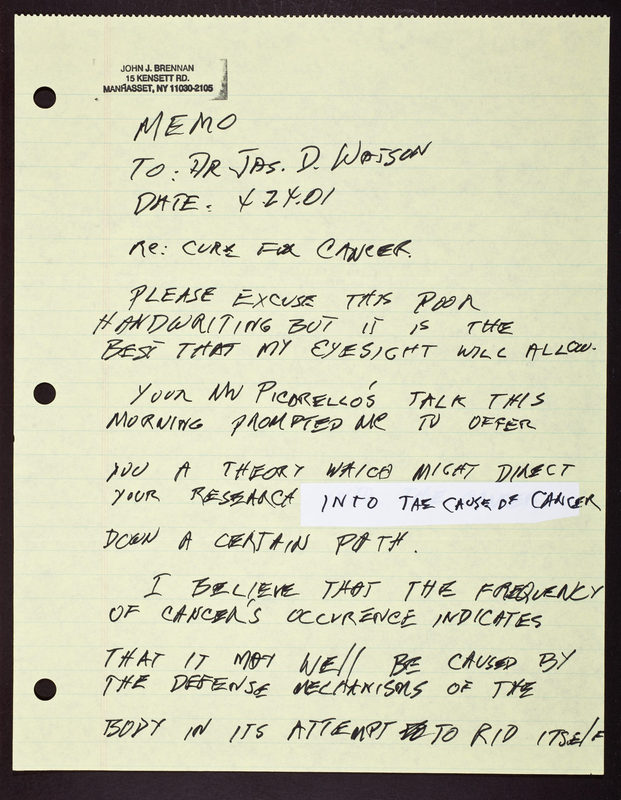 JOHN J. BRENNAN
15 KENSETT RD.
MANHASSET, NY 11030-2105
MEMO
TO: DR JAS. D. WATSON
DATE: 4.24.01
RE: CURE FOR CANCER.
PLEASE EXCUSE THIS POOR
HANDWRITING BUT IT IS THE
BEST THAT MY EYESIGHT WILL ALLOW.
YOUR MR PICARELLO'S TALK THIS
MORNING PROMPTED ME TO OFFER
YOU A THEORY WHICH MIGHT DIRECT
YOUR RESEARCH INTO THE CAUSE OF CANCER
DOWN A CERTAIN PATH.
I BELIEVE THAT THE FREQUENCY
OF CANCER'S OCCURENCE INDICATES
THAT IT MAY WELL BE CAUSED BY
THE DEFENSE MECHANISMS OF THE
BODY IN ITS ATTEMPT TO RID ITSELF